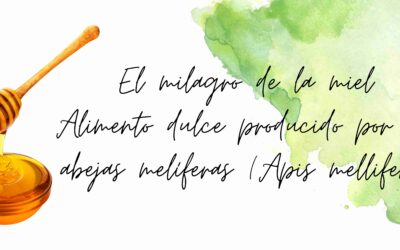 El milagro de la miel
Alimento dulce producido por
abejas melíferas (Apis mellife